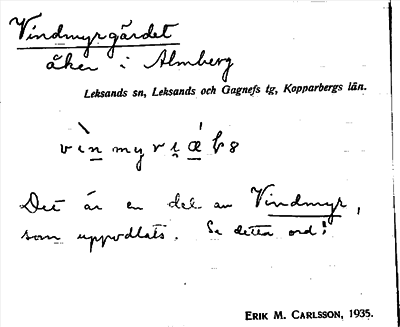 Vindmyrgärdet
åker i Almberg
Leksands sn, Leksands och Gagnefs tg, Kopparbergs län.
Det är en del av Vindmyr,
som uppodlats. Se detta ord!
ERIK M. CARLSSON, 1935.